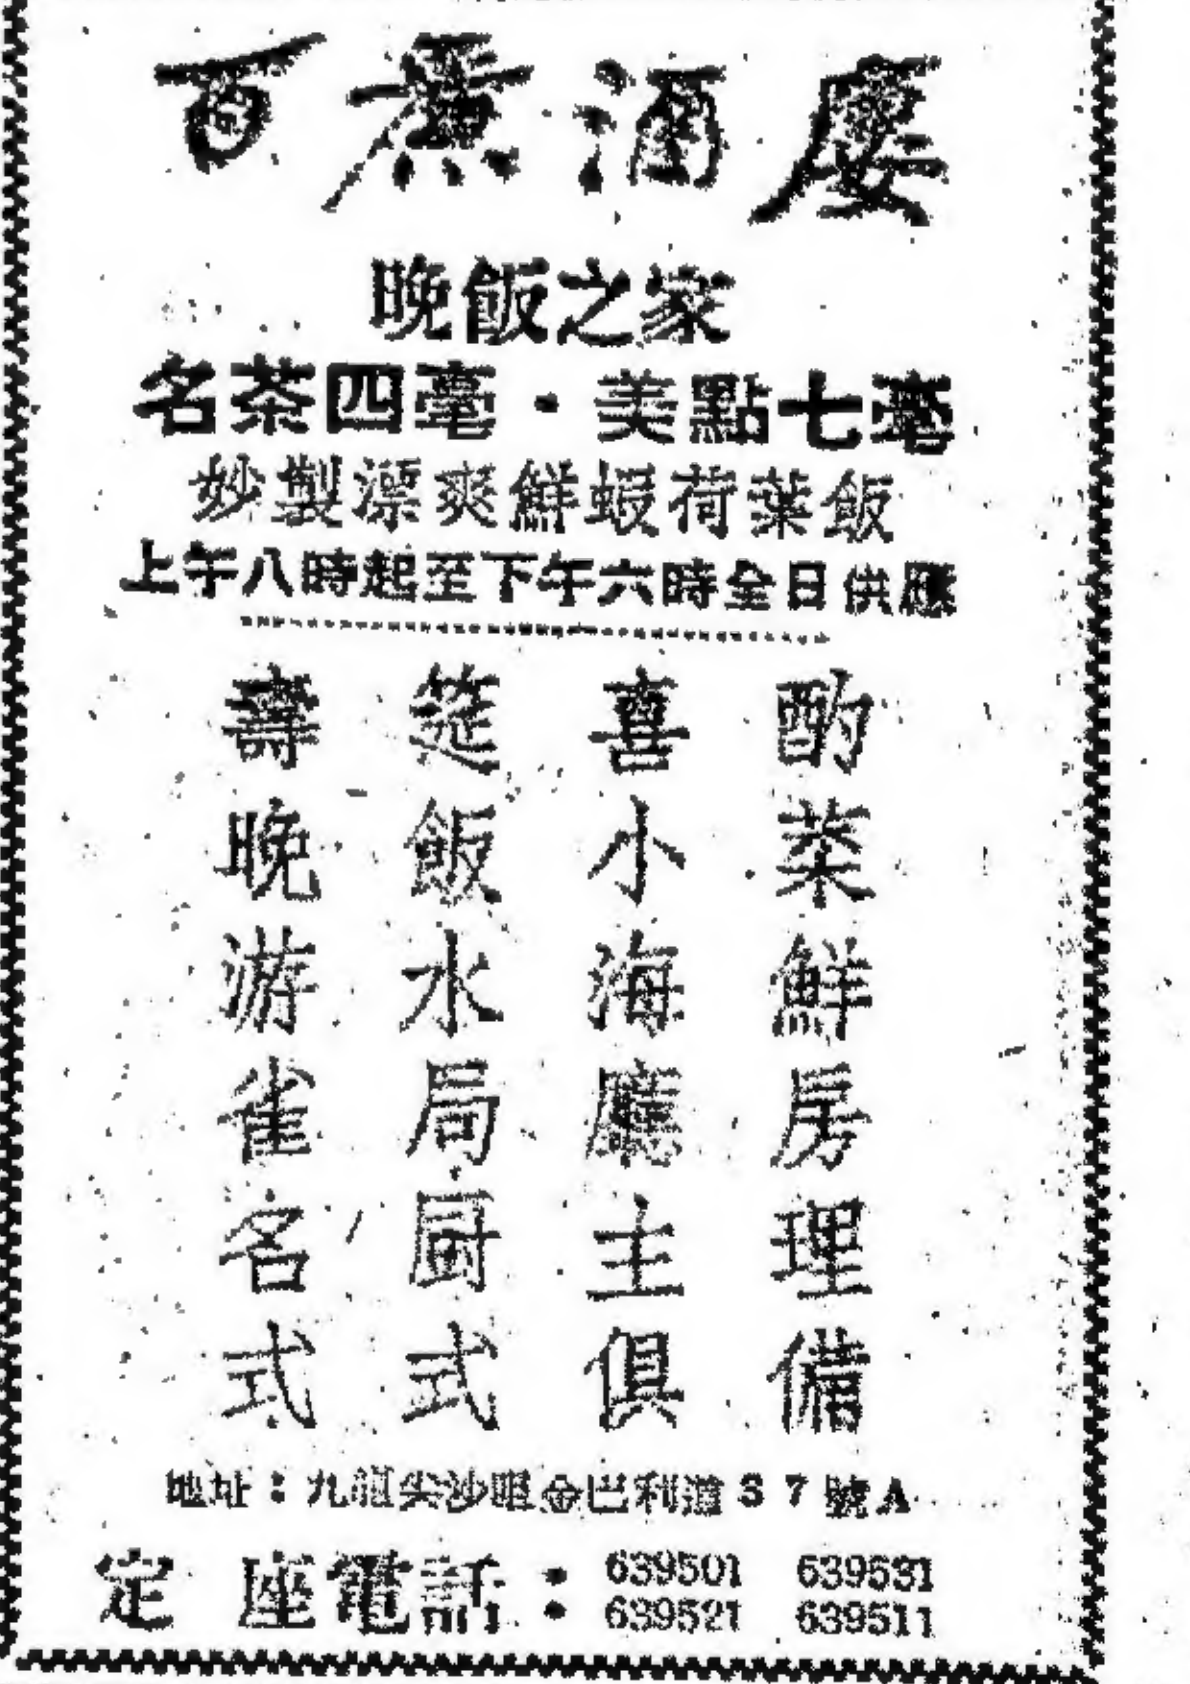 百酒廔
晚飯之家
名茶四毫·美點七毫
妙製漂爽鮮蝦荷葉飯
上午八時起至下午六時全日供應
壽筵喜酌
晚飯小菜
游水海鮮
雀局廳房
名厨主理
式式俱備
地址：九龍尖沙咀金巴利道37號A
定座電話：639501 639531
639521 639511